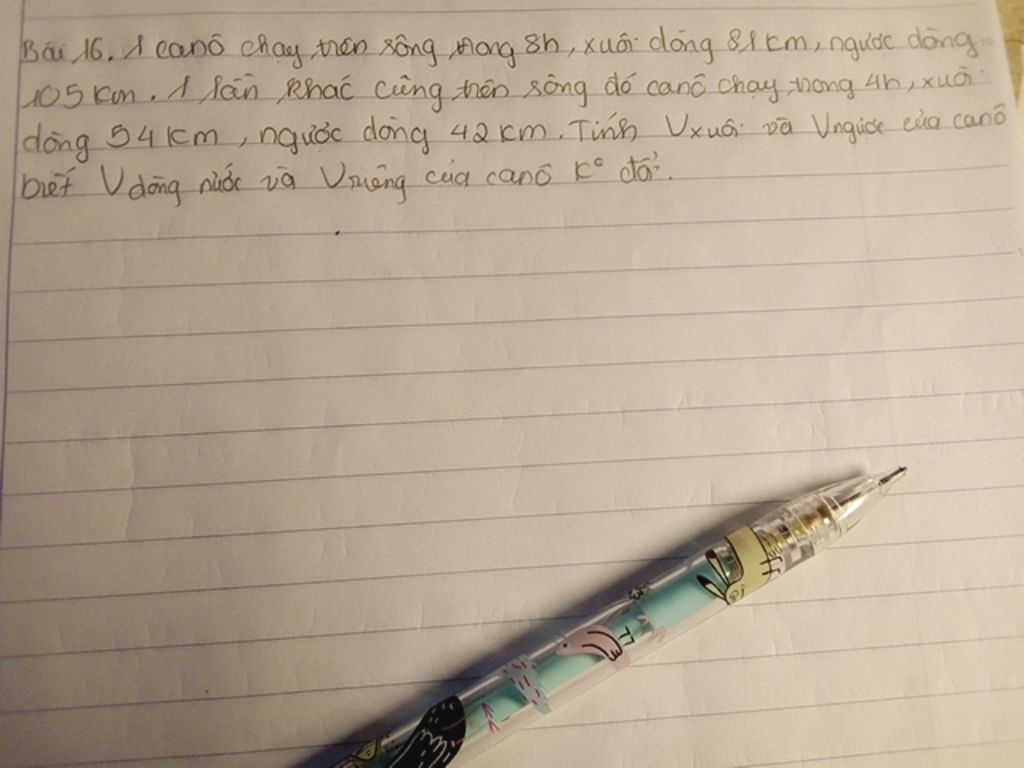 Bài 16. 1 canô chạy trên sông trong 8h, xuôi dòng 81 km, ngược dòng
105 km. 1 lần khác cũng trên sông đó canô chạy trong 4h, xuôi
dòng 54 km, ngược dòng 42 km. Tính Vxuôi và Vngược của canô
biết Vdòng nước và Vriêng của canô K° đổi.